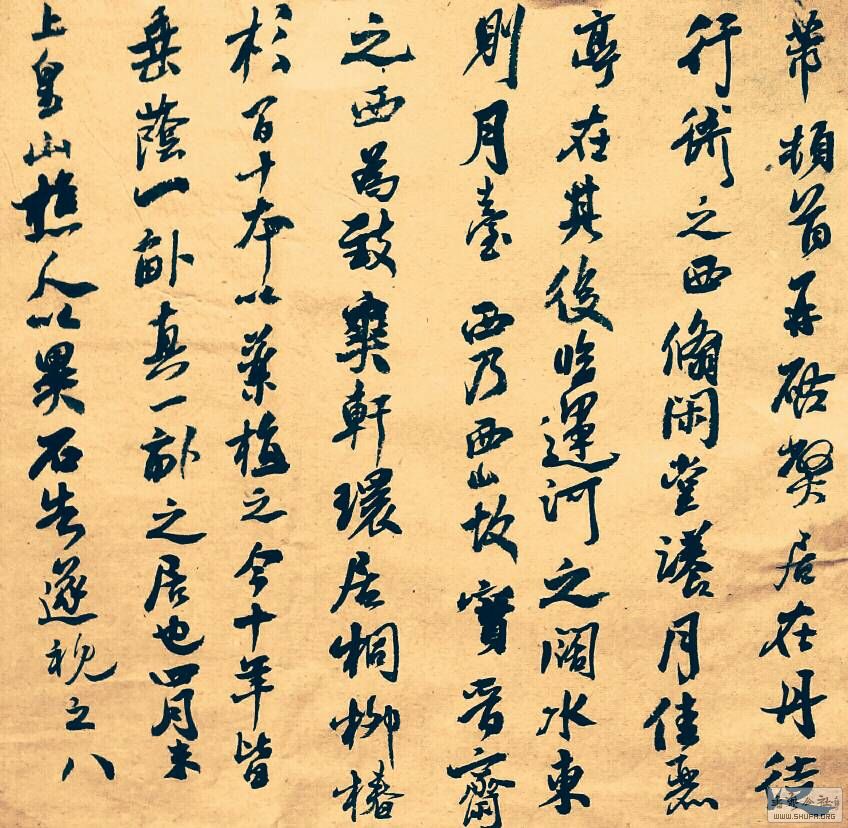 芾頓首再啓弊居在丹徒
行衙之西翛閑堂漾月佳麗
亭在其後臨運河之闊水東
則月臺西乃西山故寶晉齋
之西為致爽軒環居桐柳椿
杉百十本以藥植之今十年皆
垂蔭一畝真一畝之居也四月末
上皇山樵人以異石告遂視之八
WWW.SHUFA.ORG